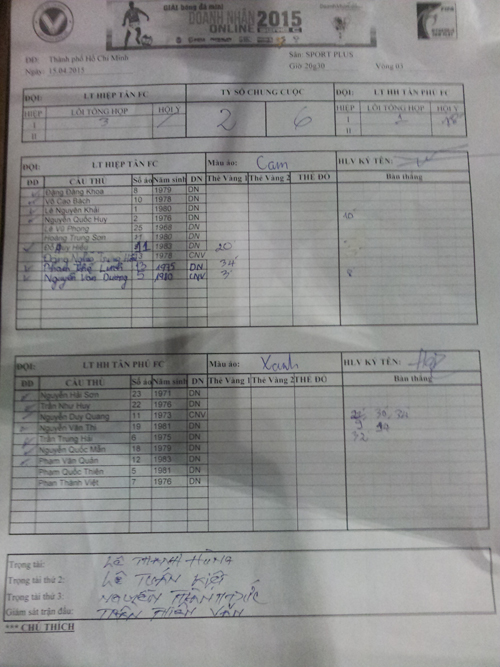 GIẢI BÓNG ĐÁ MINI
DOANH NHÂN 2015
ONLINE
ĐĐ: Thành phố Hồ Chí Minh
Sân: SPORT PLUS
Ngày: 15.04.2015
Giờ 20g30 Vòng 03
ĐỘI: LT HIỆP TÂN FC TỶ SỐ CHUNG CUỘC ĐỘI: LT HH TÂN PHÚ FC
HIỆP LỖI TỔNG HỢP HỘI Ý 2 6 HIỆP LỖI TỔNG HỢP HỘI Ý
I 3 I 1
II II
ĐỘI: LT HIỆP TÂN FC Màu áo: Cam HLV KÝ TÊN:
ĐD CẦU THỦ Số áo Năm sinh DN Thẻ Vàng 1 Thẻ Vàng 2 THẺ ĐỎ Bàn thắng
Đặng Đăng Khoa 8 1979 DN
Võ Cao Bách 10 1978 DN
Lê Nguyên Khải 1 1980 DN
Nguyễn Quốc Huy 2 1976 DN
Lê Vũ Phong 25 1968 DN
Hoàng Trung Sơn 1980 DN
Đỗ Duy Hiếu 11 1982 DN 20
1978 CNV
Linh 12 1975 DN 34'
Nguyễn Văn Dương 5 1980 CNV 3' 8
ĐỘI: LT HH TÂN PHÚ FC Màu áo: Xanh HLV KÝ TÊN:
ĐD CẦU THỦ Số áo Năm sinh DN Thẻ Vàng 1 Thẻ Vàng 2 THẺ ĐỎ Bàn thắng
Nguyễn Hải Sơn 23 1971 DN
Trần Như Huy 22 1976 DN
Nguyễn Duy Quang 11 1973 CNV
Nguyễn Văn Thi 19 1981 DN
Trần Trung Hải 6 1975 DN 32
Nguyễn Quốc Mẫn 18 1979 DN
Phạm Văn Quân 12 1983 DN
Phạm Quốc Thiên 5 1981 DN
Phan Thành Việt 7 1976 DN
Trọng tài: LÊ THANH HÙNG
Trọng tài thứ 2: LÊ TUẤN KIỆT
Trọng tài thứ 3: NGUYỄN ĐỨC
Giám sát trận đấu: TRẦN THIÊN VĂN
*** CHÚ THÍCH